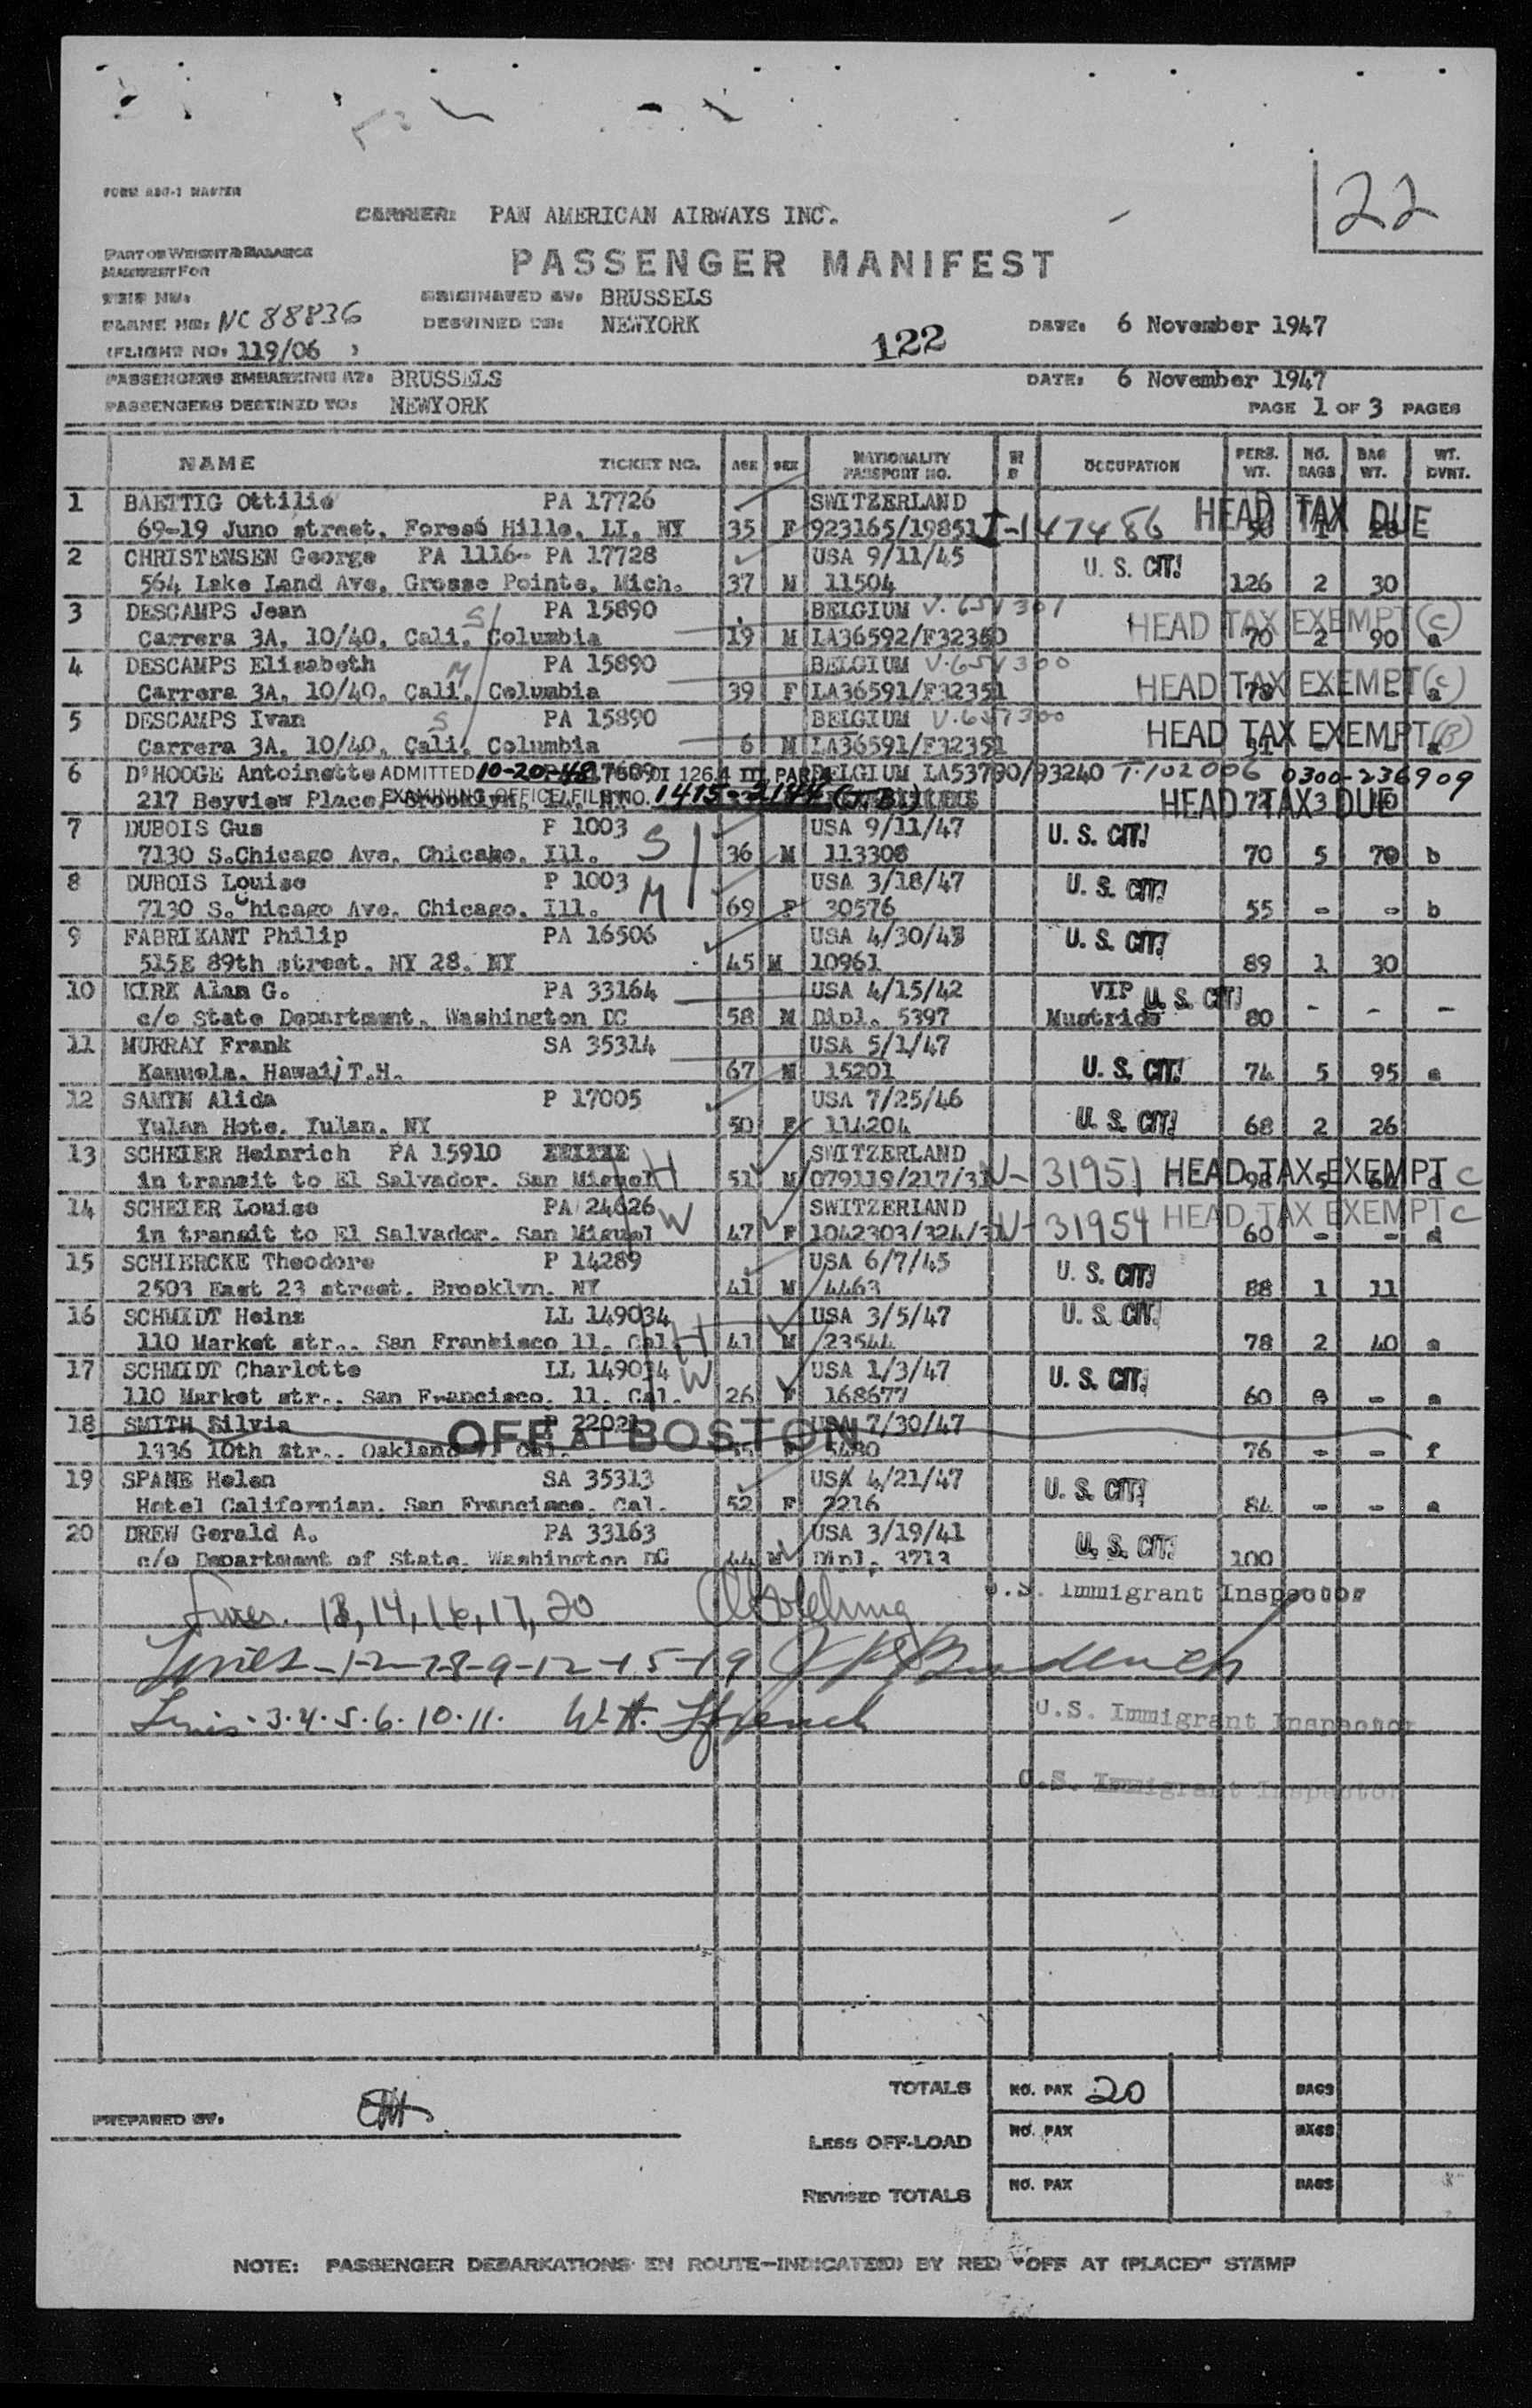 22
FORM
CARRIER: PAN AMERICAN AIRWAYS INC.
PART OF WEIGHT & BALANCE
MANIFEST FOR
PASSENGER MANIFEST
TRIP NO:
ORIGINATED AT: BRUSSELS
PLANE NO: NC 88836
DESTINED TO: NEWYORK
122
DATE: 6 November 1947
(FLIGHT NO: 119/06 )
PASSENGERS EMBARKING AT: BRUSSELS
DATE: 6 November 1947
PASSENGERS DESTINED TO: NEWYORK
PAGE 1 OF 3 PAGES
NAME TICKET NO. AGE SEX NATIONALITY PASSPORT NO. OCCUPATION PERS. WT. NO. BAGS BAG WT. WT. DVNT.
1 BAETTIG Ottilie PA 17726 SWITZERLAND HEAD TAX DUE
69-19 Juno street, Forest Hills, LI, NY 35 F 923165/19851 I-147486
2 CHRISTENSEN George PA 1116- PA 17728 USA 9/11/45 U. S. CIT!
564 Lake Land Ave, Grosse Pointe, Mich. 37 M 11504 126 2 30
3 DESCAMPS Jean S PA 15890 BELGIUM HEAD TAX EXEMPT (C)
Carrera 3A, 10/40, Cali, Columbia 19 M LA36592/F32350 70 2 90 a
4 DESCAMPS Elisabeth M PA 15890 BELGIUM V.651300 HEAD TAX EXEMPT (C)
Carrera 3A, 10/40, Cali, Columbia 39 F LA36591/F32351 a
5 DESCAMPS Ivan S PA 15890 BELGIUM HEAD TAX EXEMPT (B)
Carrera 3A, 10/40, Cali, Columbia 6 M LA36591/F32351 a
6 D'HOOGE Antoinette ADMITTED 10-20-48 BELGIUM LA53790/93240 T.102006 0300-236909
217 Bayview Place, Brooklyn, NY EXAMINING OFFICE FILE NO. 1415-2144 HEAD TAX DUE
7 DUBOIS Gus P 1003 S USA 9/11/47 U. S. CIT!
7130 S.Chicago Ave, Chicago, Ill. 36 M 113308 70 5 70 b
8 DUBOIS Louise P 1003 M USA 3/18/47 U. S. CIT!
7130 S.Chicago Ave. Chicago, Ill. 69 F 30576 55 - - b
9 FABRIKANT Philip PA 16506 USA 4/30/45 U. S. CIT!
515E 89th street, NY 28, NY 45 M 10961 89 1 30
10 KIRK Alan G. PA 33164 USA 4/15/42 VIP U. S. CIT!
c/o State Department, Washington DC 58 M Dipl. 5397 Mustride 80 - - -
11 MURRAY Frank SA 35314 USA 5/1/47
Kamuela, Hawaii T.H. 67 M 15201 U. S. CIT! 74 5 95 e
12 SAMYN Alida P 17005 USA 7/25/46
Yulan Hote. Yulan, NY 50 F 114204 U. S. CIT! 68 2 26
13 SCHEIER Heinrich PA 15910 H SWITZERLAND HEAD TAX EXEMPT C
in transit to El Salvador, San Miguel 51 M 079119/217/31 V-31951
14 SCHEIER Louise PA 24626 W SWITZERLAND HEAD TAX EXEMPT C
in transit to El Salvador, San Miguel 47 F 1042303/324/31 V-31954 60 - - d
15 SCHIERCKE Theodore P 14289 USA 6/7/45 U. S. CIT!
2503 East 23 street, Brooklyn, NY 41 M 4463 88 1 11
16 SCHMIDT Heinz LL 149034 USA 3/5/47 U. S. CIT!
110 Market str., San Franbisco 11, Cal. H 41 M 23544 78 2 40 a
17 SCHMIDT Charlotte LL 149034 USA 1/3/47 U. S. CIT!
110 Market str., San Francisco, 11, Cal. W 26 F 168677 60 - - a
18 SMITH Silvia P 22021 OFF AT BOSTON USA 7/30/47
1336 10th str., Oakland 76 - - f
19 SPANE Helen SA 35313 USA 4/21/47 U. S. CIT!
Hotel Californian, San Francisco, Cal. 52 F 2216 84 - - e
20 DREW Gerald A. PA 33163 USA 3/19/41 U. S. CIT!
c/o Department of State, Washington DC 44 M Dipl. 3713 100
Lines. 13, 14, 16, 17, 20 U.S. Immigrant Inspector
Lines-1-2-7-8-9-12-15-19
Lines. 3.4.5.6.10.11. W.H. U.S. Immigrant Inspector
U.S. Immigrant Inspector
TOTALS NO. PAX 20 BAGS
PREPARED BY:
LESS OFF-LOAD NO. PAX BAGS
REVISED TOTALS NO. PAX BAGS
NOTE: PASSENGER DEBARKATIONS EN ROUTE-INDICATED BY RED "OFF AT (PLACE)" STAMP